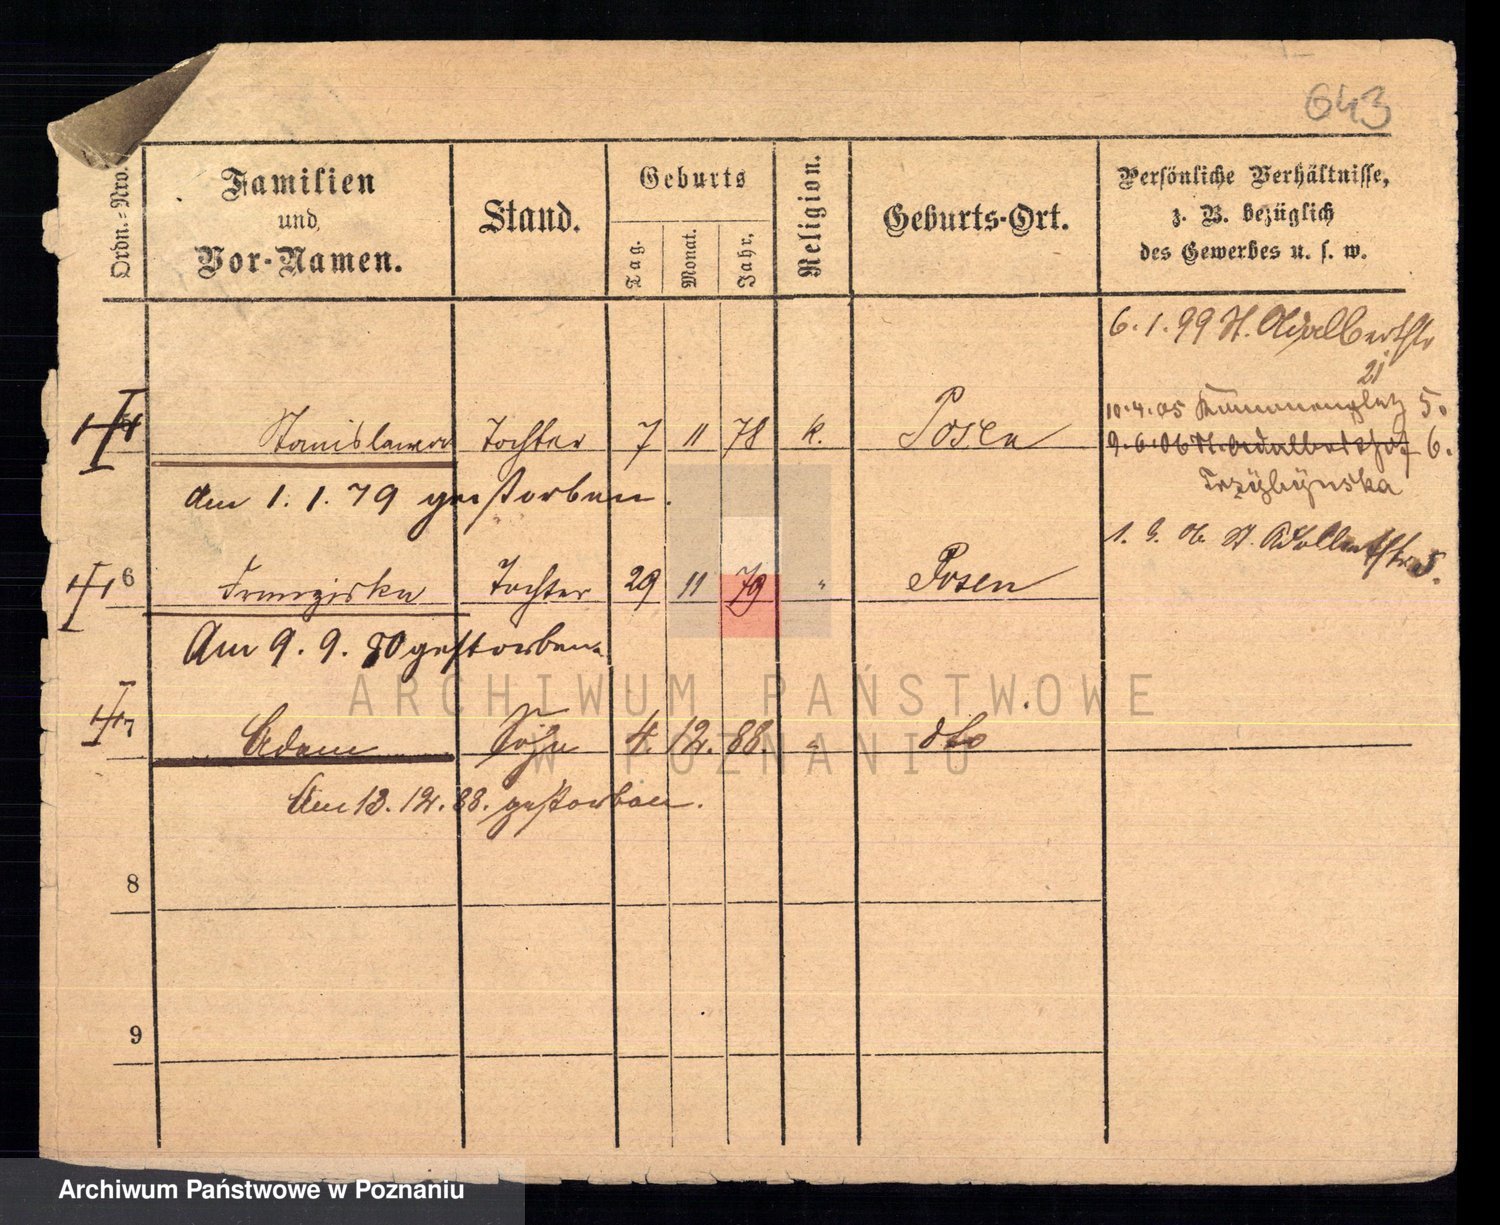 643
Ordn.-Nro.
Familien
und
Vor-Namen.
Stand.
Geburts
Tag.
Monat.
Jahr,
Religion.
Geburts-Ort.
Persönliche Verhältnisse,
z. B. bezüglich
des Gewerbes u. s. w.
6. 1. 99 St. Adalbertstr
21
10. 4. 05 5.
Stanislawa Tochter 7 11 78 k. Posen
9. 6. 06 St. Adalbertstr 6.
am 1. 1. 79 gestorben.
1. 9. 06 St. 5.
6 Franziska Tochter 29 11 79 " Posen
Am 9. 9. 80 gestorben.
ARCHIWUM PAŃSTWOWE
7 Adam Sohn 4. 12. 88. " dto
W POZNANIU
Am 13. 12. 88. gestorben.
8
9
Archiwum Państwowe w Poznaniu